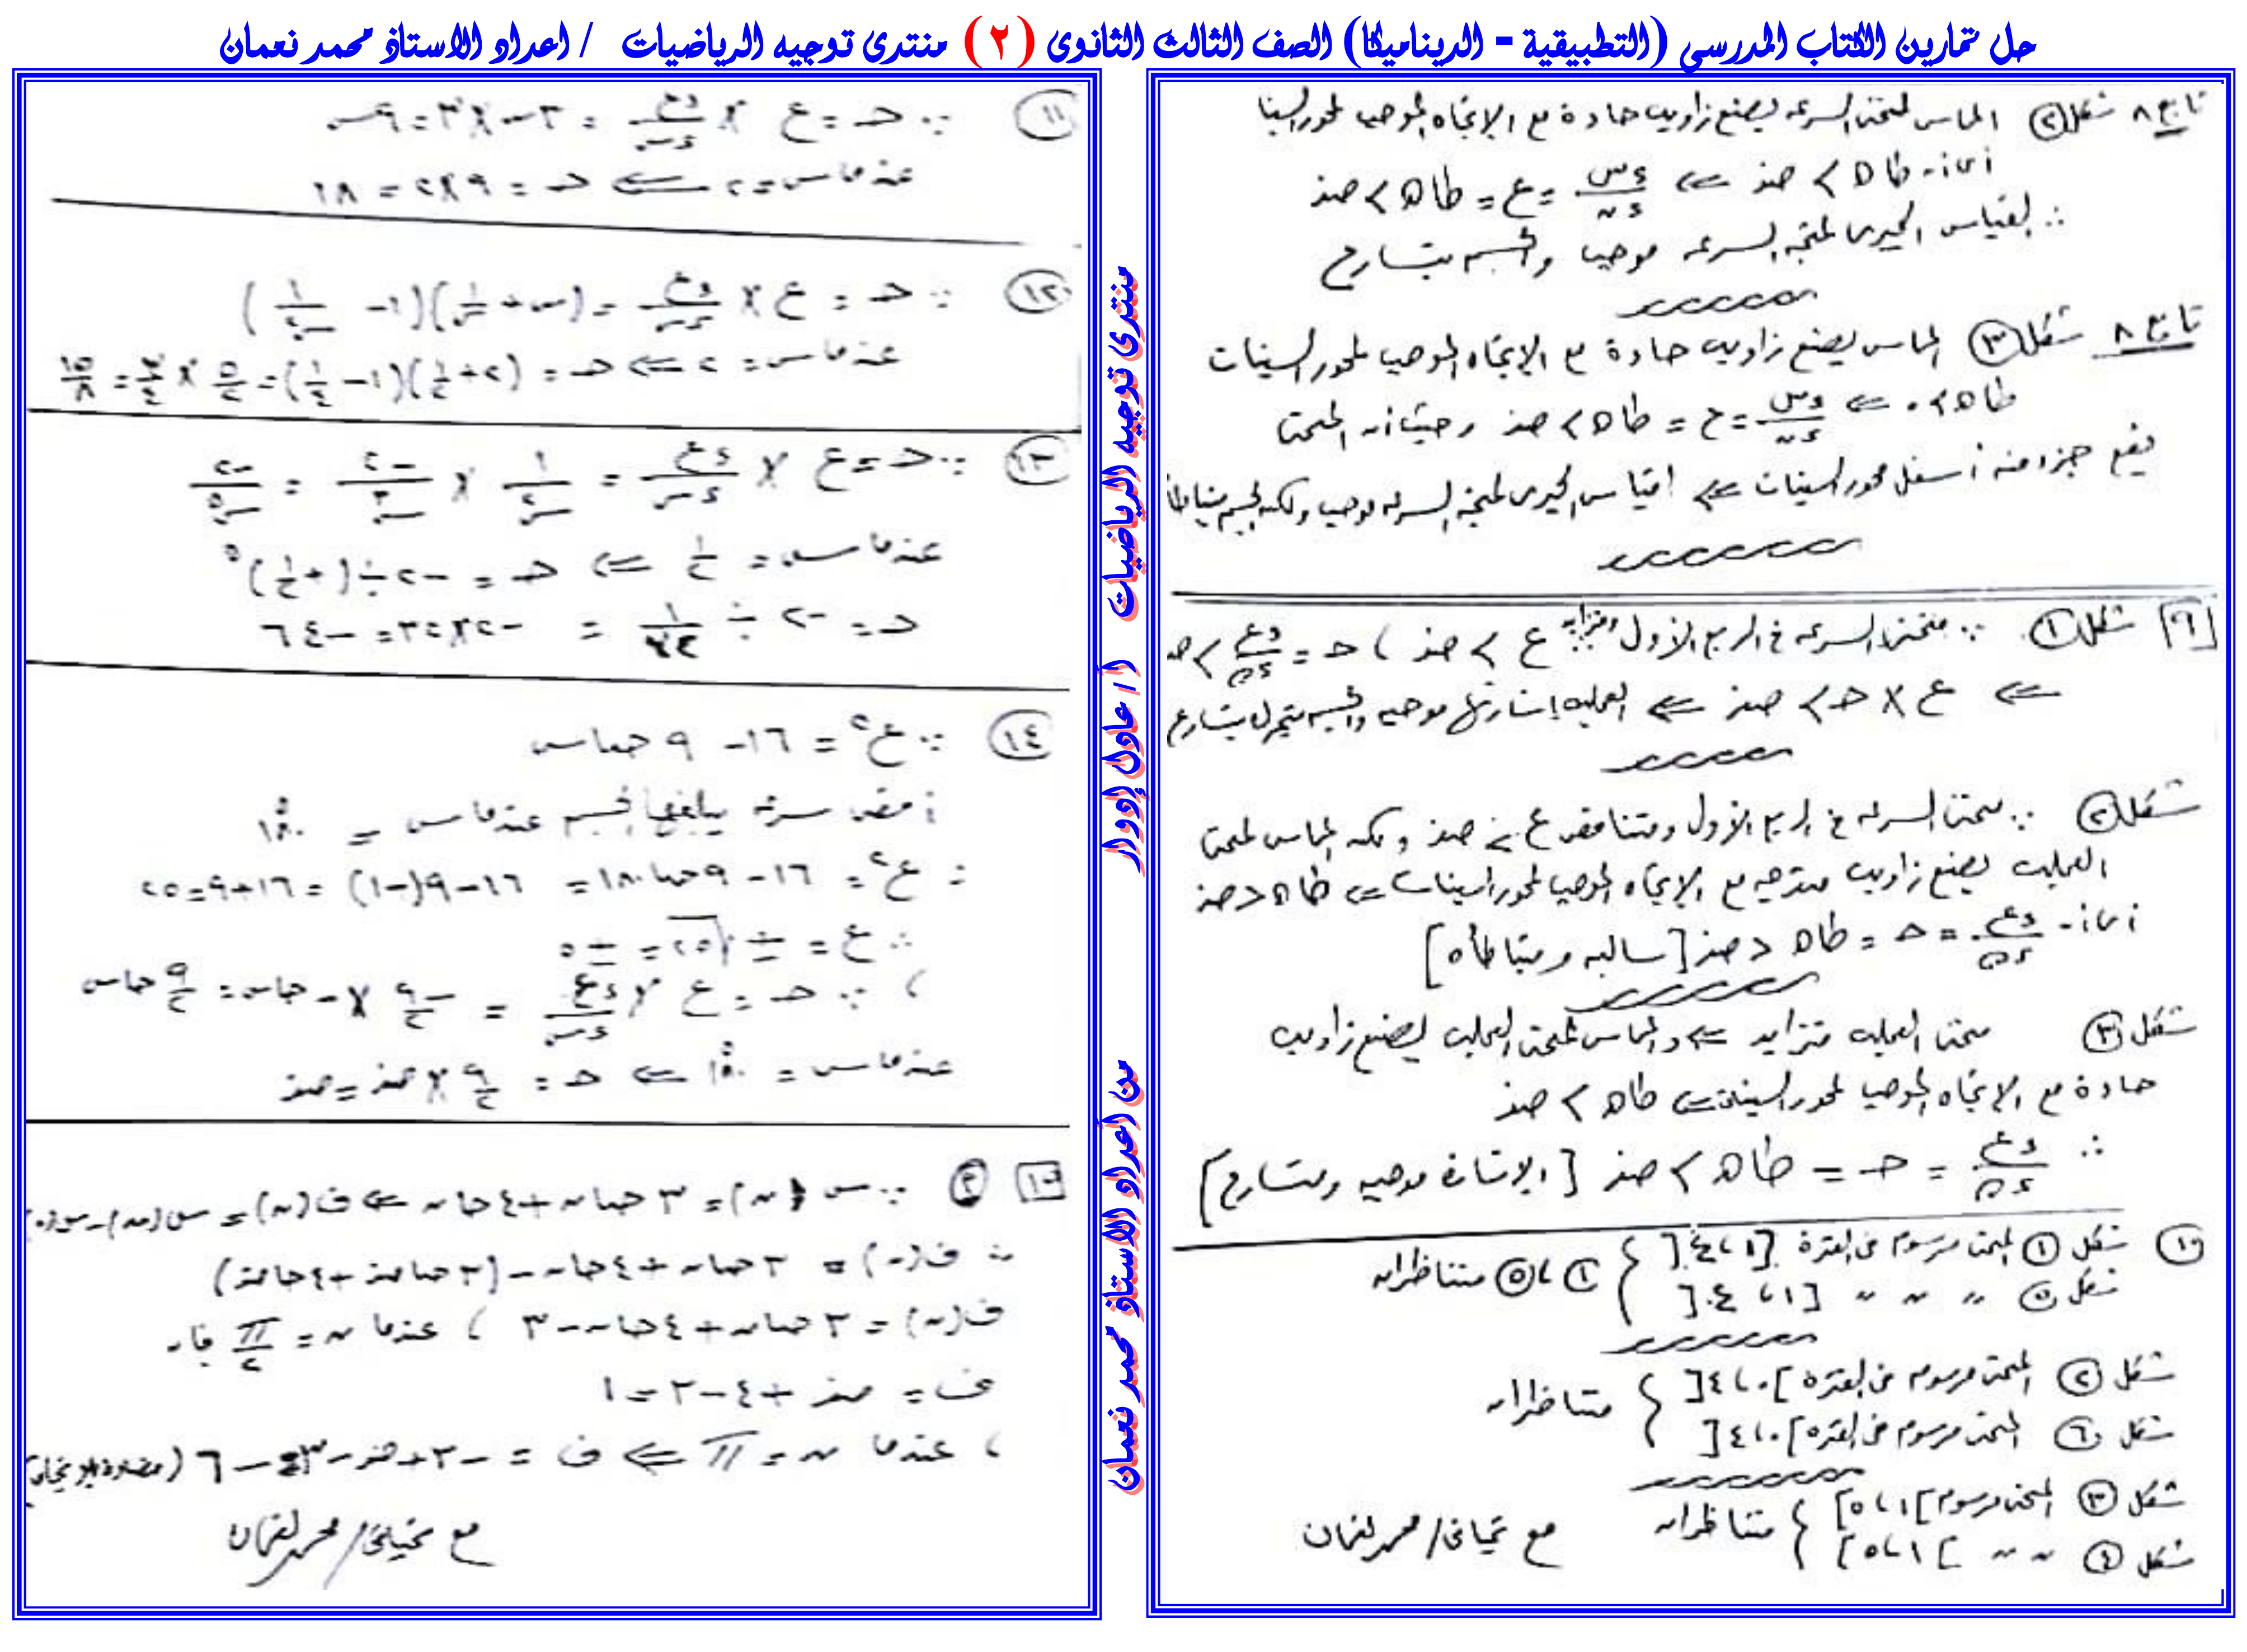 حل تمارين الكتاب المدرسى (التطبيقية - الديناميكا) الصف الثالث الثانوى (٢) منتدى توجيه الرياضيات / اعداد الاستاذ محمد نعمان
تابع ٨ شكل ② المماس لمنحنى السرعه يصنع زاويه حادة مع الإتجاه الموجب لمحور السينا
أى أن طا هـ > صفر ⇐ ءس/ءن = ع = طا هـ > صفر
∴ القياس الجبرى لمتجه السرعه موجب والجسم يتسارع
تابع ٨ شكل ③ المماس يصنع زاويه حادة مع الإتجاه الموجب لمحور السينات
طا هـ > ٠ ⇐ ءس/ءن = ع = طا هـ > صفر وحيث أن المنحنى
يقع جزء منه أسفل محور السينات ⇐ القياس الجبرى لمتجه السرعه موجب ولكن الجسم يتباطأ
[٩] شكل ① ∵ منحنى السرعه فى الربع الأول ومتزايد ع > صفر ، حـ = ءع/ءن > صـ
⇐ ع × حـ > صفر ⇐ العجله إشارتها موجبه والجسم يتحرك بتسارع
شكل ② ∵ منحنى السرعه فى الربع الأول ومتناقص ع > صفر ولكن المماس لمنحنى
العجله يصنع زاويه منفرجه مع الإتجاه الموجب لمحور السينات ⇐ طا هـ < صفر
أى أن ءع/ءن = حـ = طا هـ < صفر [سالبه ومتباطأه]
شكل ③ منحنى العجله متزايد ⇐ والمماس لمنحنى العجله يصنع زاويه
حادة مع الإتجاه الموجب لمحور السينات ⇐ طا هـ > صفر
∴ ءع/ءن = حـ = طا هـ > صفر [الإشارة موجبه ومتسارع]
⑩ شكل ① المنحنى مرسوم فى الفترة [١ ، ٤[
شكل ⑤ " " " [١ ، ٤[ } ① ، ⑤ متناظران
شكل ② المنحنى مرسوم فى الفتره ]٠ ، ٤[
شكل ⑥ المنحنى مرسوم فى الفتره ]٠ ، ٤[ } متناظران
شكل ③ المنحنى مرسوم ]١ ، ٥]
شكل ④ " " ]١ ، ٥] } متناظران
مع تحياتى / محمد نعمان
⑪ ∵ حـ = ع × ءع/ءس = ٣س × ٣ = ٩س
عندما س = ٢ ⇐ حـ = ٩×٢ = ١٨
⑫ ∵ حـ = ع × ءع/ءس = (س + ١/س)(١ - ١/س٢)
عندما س = ٢ ⇐ حـ = (٢ + ١/٢)(١ - ١/٤) = ٥/٢ × ٣/٤ = ١٥/٨
⑬ ∵ حـ = ع × ءع/ءس = ١/س٢ × -٢/س٣ = -٢/س٥
عندما س = ١/٢ ⇐ حـ = -٢ ÷ (+١/٢)٥
حـ = -٢ ÷ ١/٣٢ = -٢×٣٢ = -٦٤
⑭ ∵ ع٢ = ١٦ - ٩ حتا س
أقصى سرعه يبلغها الجسم عندما س = ١٨٠°
∴ ع٢ = ١٦ - ٩ حتا ١٨٠ = ١٦ - ٩(-١) = ١٦+٩ = ٢٥
∴ ع = ± √٢٥ = ± ٥
، ∵ حـ = ع × ءع/ءس = -٩/٢ × - حاس = ٩/٢ حاس
عندما س = ١٨٠° ⇐ حـ = ٩/٢ × صفر = صفر
∵ س(ن) = ٣ حتا ن + ٤ حا ن ⇐ ف(ن) = س(ن) - س(٠)
∴ ف(ن) = ٣ حتا ن + ٤ حا ن - (٣ حتا صفر + ٤ حا صفر)
ف(ن) = ٣ حتا ن + ٤ حا ن - ٣ ، عندما ن = π/٢ فإن
ف = صفر + ٤ - ٣ = ١
، عندما ن = π ⇐ ف = -٣ + صفر - ٣ = -٦
مع تحياتى / محمد نعمان
منتدى توجيه الرياضيات
أ / عادل إدوار
من اعداد الاستاذ محمد نعمان